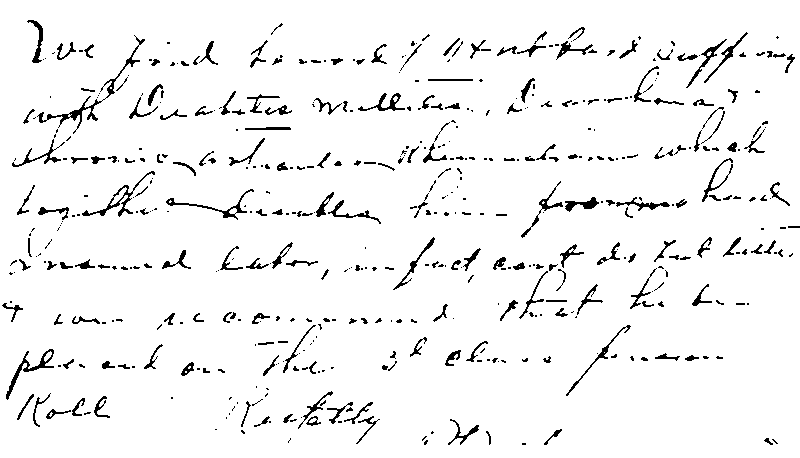 We find suffering
with Diabetes Mellitis, Diarrhoea &
chronic articular Rheumatism which
together disables him from hard
manual labor, in fact, cant do but little
& we recommend that he be
placed on the 3d class pension
Roll Respectfully